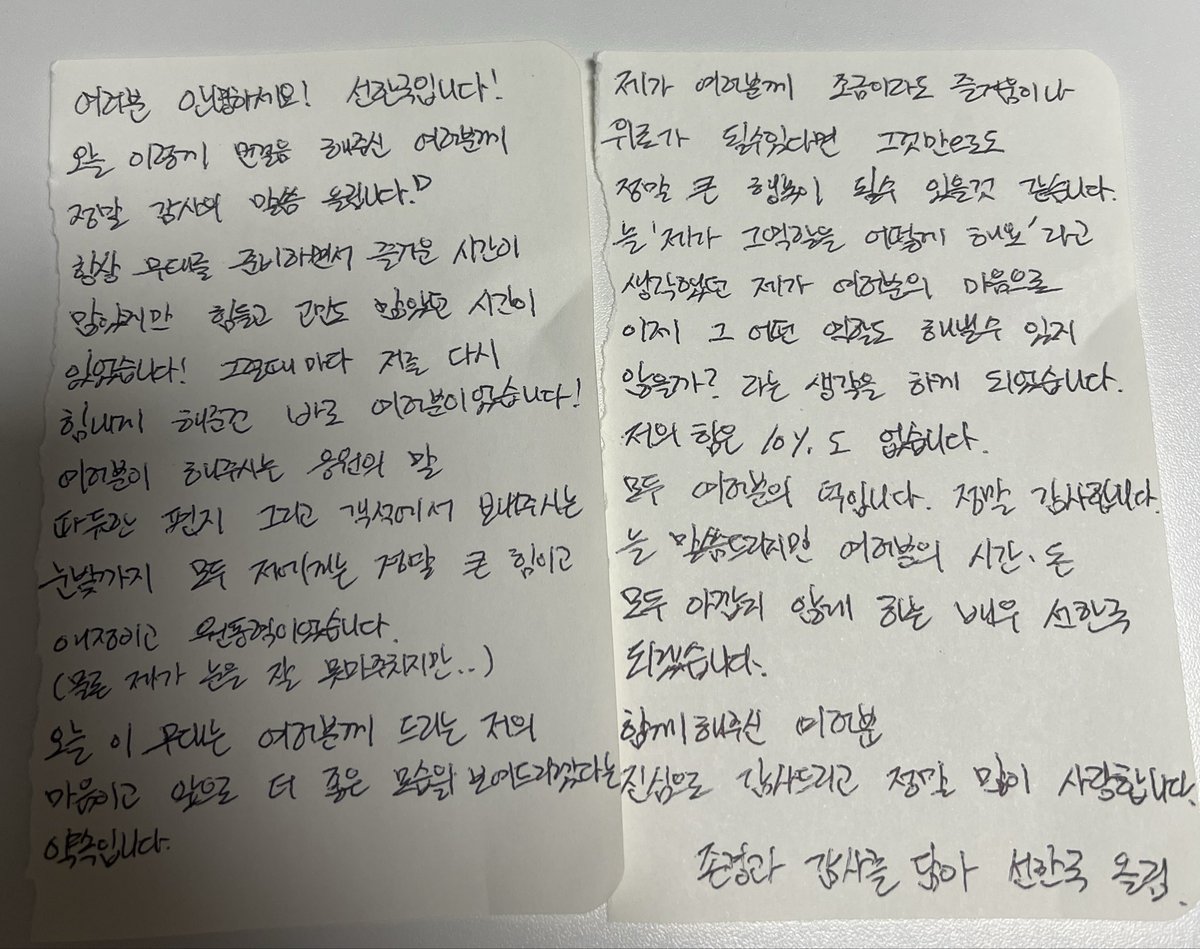 여러분 안녕하세요! 선한국입니다!
오늘 이렇게 발걸음 해주신 여러분께
정말 감사의 말씀 올립니다!
항상 무대를 준비하면서 즐거운 시간이
많았지만 힘들고 고민도 많았던 시간이
있었습니다! 그럴때마다 저를 다시
힘내게 해준건 바로 여러분이었습니다!
여러분이 해주시는 응원의 말
따뜻한 편지 그리고 객석에서 보내주시는
눈빛까지 모두 저에게는 정말 큰 힘이고
애정이고 원동력이었습니다.
(물론 제가 눈을 잘 못마주치지만..)
오늘 이 무대는 여러분께 드리는 저의
마음이고 앞으로 더 좋은 모습을 보여드리겠다는
약속입니다.
제가 여러분께 조금이라도 즐거움이나
위로가 될수있다면 그것만으로도
정말 큰 행복이 될수 있을것 같습니다.
늘 '제가 그역할을 어떻게 해요' 라고
생각했었던 제가 여러분의 마음으로
이제 그 어떤 역할도 해낼수 있지
않을까? 라는 생각을 하게 되었습니다.
저의 힘은 10%도 없습니다.
모두 여러분의 덕입니다. 정말 감사합니다.
늘 말씀드리지만 여러분의 시간·돈
모두 아깝지 않게 하는 배우 선한국
되겠습니다.
함께해주신 여러분
진심으로 감사드리고 정말 많이 사랑합니다.
존경과 감사를 담아 선한국 올림.